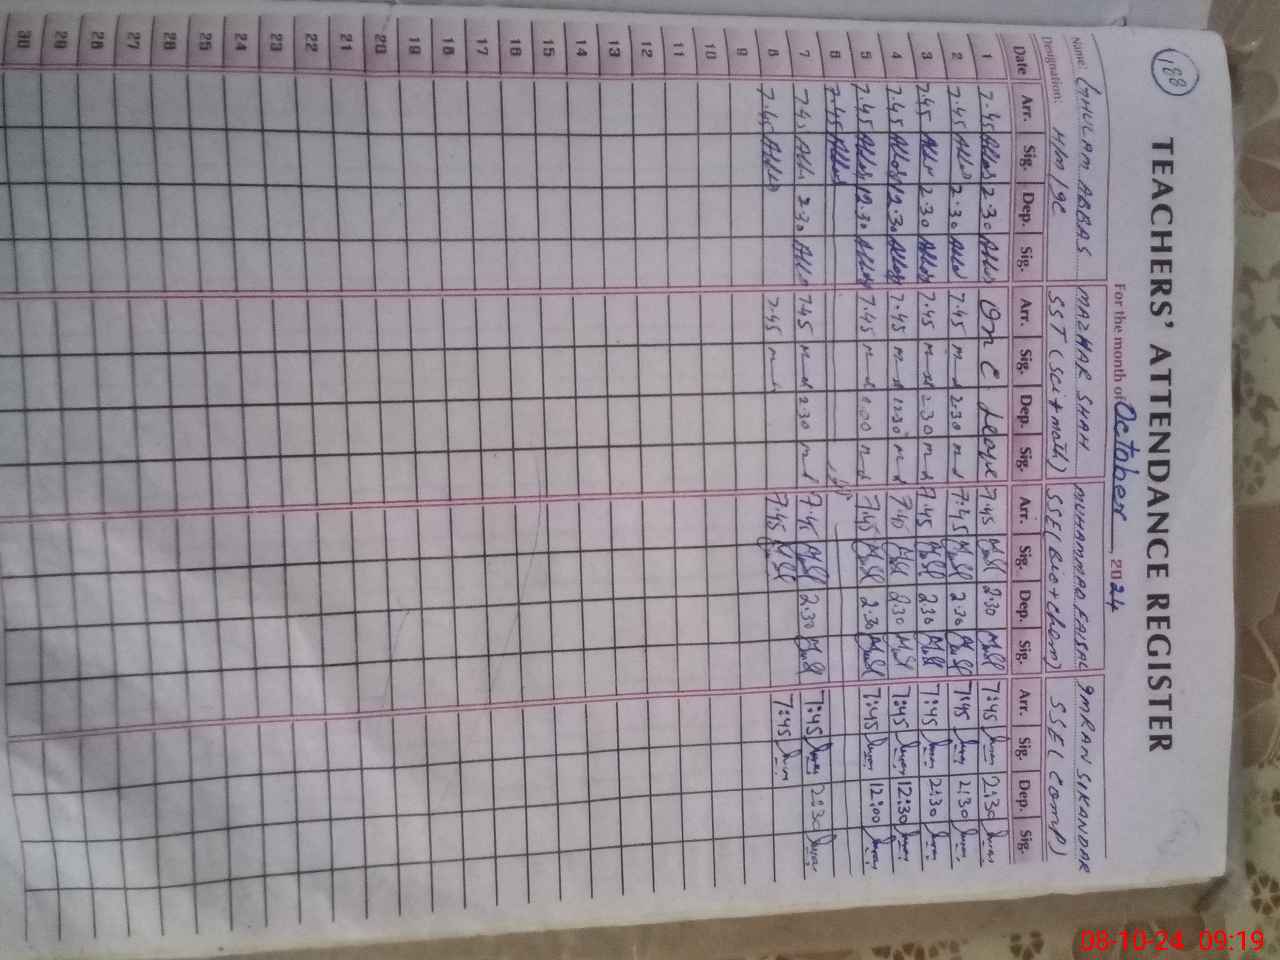 188
TEACHERS' ATTENDANCE REGISTER
For the month of October, 2024
Name: GHULAM ABBAS MAZHAR SHAH MUHAMMAD FAISAL IMRAN SIKANDAR
Designation: H/M SST (Sci+math) SSE (Bio+Chem) SSE (Comp)
Date Arr. Sig. Dep. Sig. Arr. Sig. Dep. Sig. Arr. Sig. Dep. Sig. Arr. Sig. Dep. Sig.
1 7.45 2.30 One Leave 7.45 2.30 7:45 2:30
2 7.45 2.30 7.45 2.30 7.45 2.30 7:45 2:30
3 7.45 2.30 7.45 2.30 7.45 2.30 7:45 2:30
4 7.45 12.30 7.45 12.30 7.45 7:45 12:30
5 7.45 12.30 7.45 7.45 2.30 7:45 12:00
6 7.45
7 7.45 2.30 7.45 2.30 7.45 2.30 7:45 2:30
8 7.45 7.45 7.45 7:45
9
10
11
12
13
14
15
16
17
18
19
20
21
22
23
24
25
26
27
28
29
30
08-10-24 09:19